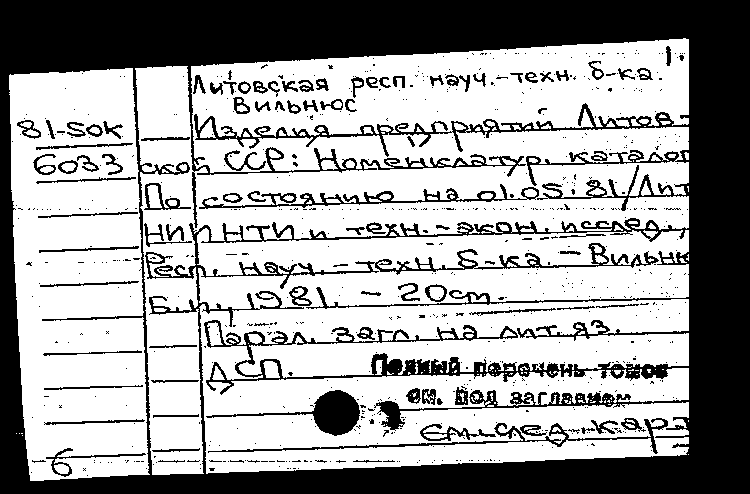 1.
Литовская респ. науч.-техн. б-ка.
Вильнюс
81-50К Изделия предприятий Литов-
6033 ской ССР: Номенклатур. каталог
По состоянию на 01.05.81./Лит
НИИНТИ и техн.-экон. исслед.,
Респ. науч.-техн. б-ка. - Вильню
Б.и., 1981. - 20см.
Парал. загл. на лит. яз.
ДСП. Полный перечень томов
см. под заглавием
См. след. карт
6